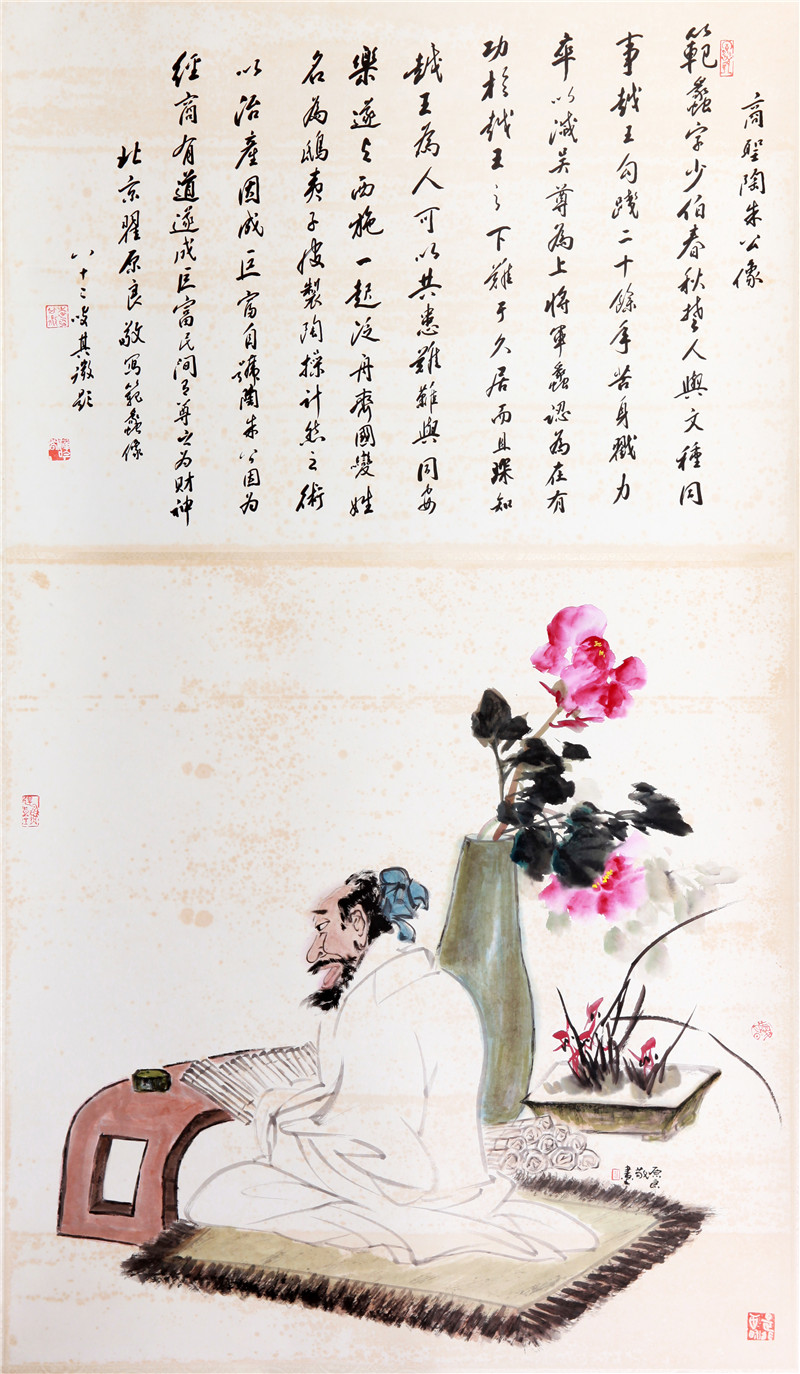 商聖陶朱公像
範蠡字少伯春秋楚人與文種同
事越王勾踐二十餘年苦身戮力
卒以滅吳尊為上將軍蠡認為在有
功於越王之下難于久居而且深知
越王為人可以共患難難與同安
樂遂与西施一起泛舟齊國變姓
名為鴟夷子皮製陶操計然之術
以治產因成巨富自號陶朱公因為
經商有道遂成巨富民間有尊之為財神
北京翟原良敬寫範蠡像
八十三叟其徵題
原良
敬畫